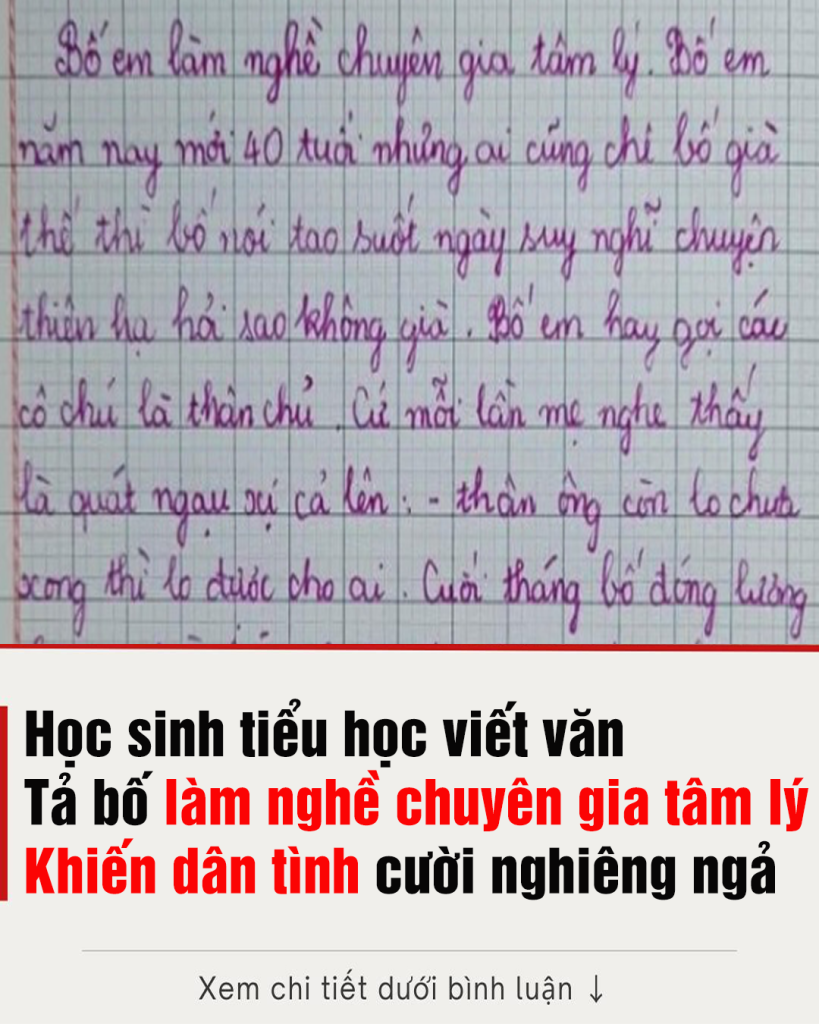 Bố em làm nghề chuyên gia tâm lý. Bố em
năm nay mới 40 tuổi nhưng ai cũng chê bố già
thế thì bố nói tao suốt ngày suy nghĩ chuyện
thiên hạ hỏi sao không già. Bố em hay gọi các
cô chú là thân chủ. Cứ mỗi lần mẹ nghe thấy
là quát ngạu xị cả lên: - thân ông còn lo chưa
xong thì lo được cho ai. Cuối tháng bố đóng lương
Học sinh tiểu học viết văn
Tả bố làm nghề chuyên gia tâm lý
Khiến dân tình cười nghiêng ngả
Xem chi tiết dưới bình luận ↓